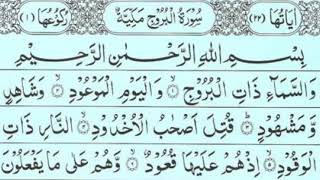 اٰیَاتُهَا (٢٢) سُوْرَةُ الْبُرُوْجِ مَکِّیَّةٌ رُکُوْعُهَا (١)
بِسْمِ اللّٰهِ الرَّحْمٰنِ الرَّحِیْمِ
وَالسَّمَآءِ ذَاتِ الْبُرُوْجِ ۝١ وَالْیَوْمِ الْمَوْعُوْدِ ۝٢ وَشَاهِدٍ
وَّمَشْهُوْدٍ ۝٣ قُتِلَ اَصْحٰبُ الْاُخْدُوْدِ ۝٤ النَّارِ ذَاتِ
الْوَقُوْدِ ۝٥ اِذْهُمْ عَلَیْهَا قُعُوْدٌ ۝٦ وَّهُمْ عَلٰی مَا یَفْعَلُوْنَ